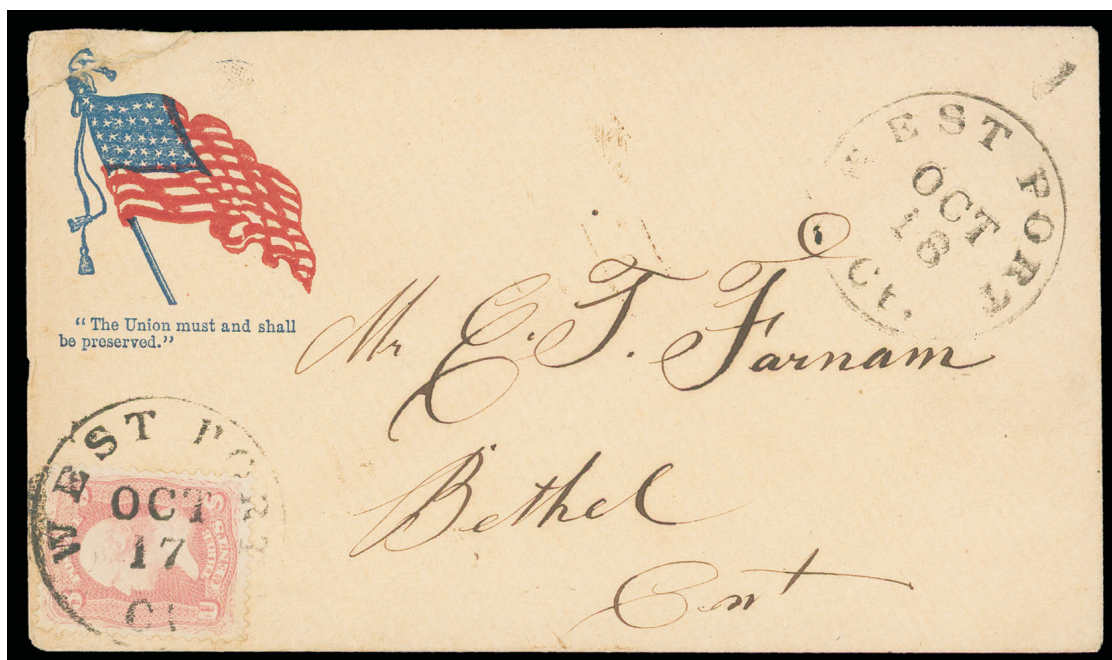 “The Union must and shall
be preserved.”
WEST PORT
OCT
18
Ct.
Mr E. T. Farnam
Bethel
Cont
WEST PORT
OCT
17
Ct